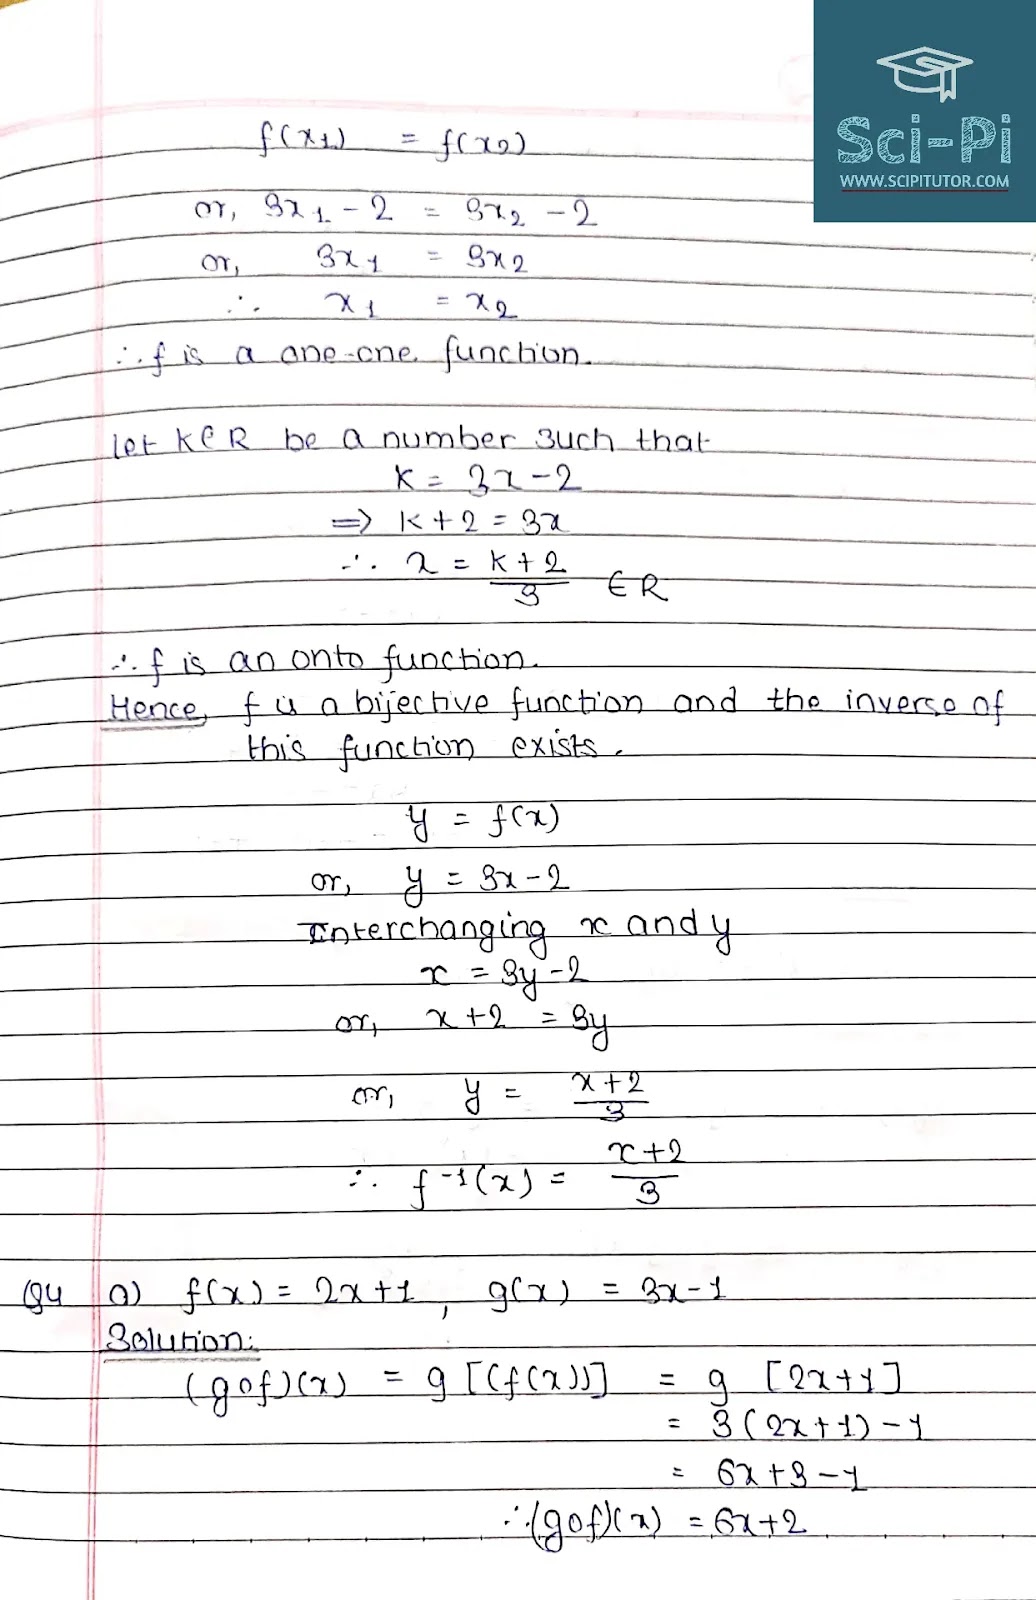 Sci-Pi
WWW.SCIPITUTOR.COM
f(x1) = f(x2)
or, 3x1 - 2 = 3x2 - 2
or, 3x1 = 3x2
∴ x1 = x2
∴ f is a one-one function.
let K∈R be a number such that
K = 3x - 2
=> K + 2 = 3x
∴ x = (K + 2)/3 ∈ R
∴ f is an onto function.
Hence, f is a bijective function and the inverse of
this function exists.
y = f(x)
or, y = 3x - 2
Interchanging x and y
x = 3y - 2
or, x + 2 = 3y
or, y = (x + 2)/3
∴ f⁻¹(x) = (x + 2)/3
Q4 a) f(x) = 2x + 1, g(x) = 3x - 1
Solution:
(gof)(x) = g [(f(x))] = g [2x + 1]
= 3(2x + 1) - 1
= 6x + 3 - 1
∴ (gof)(x) = 6x + 2